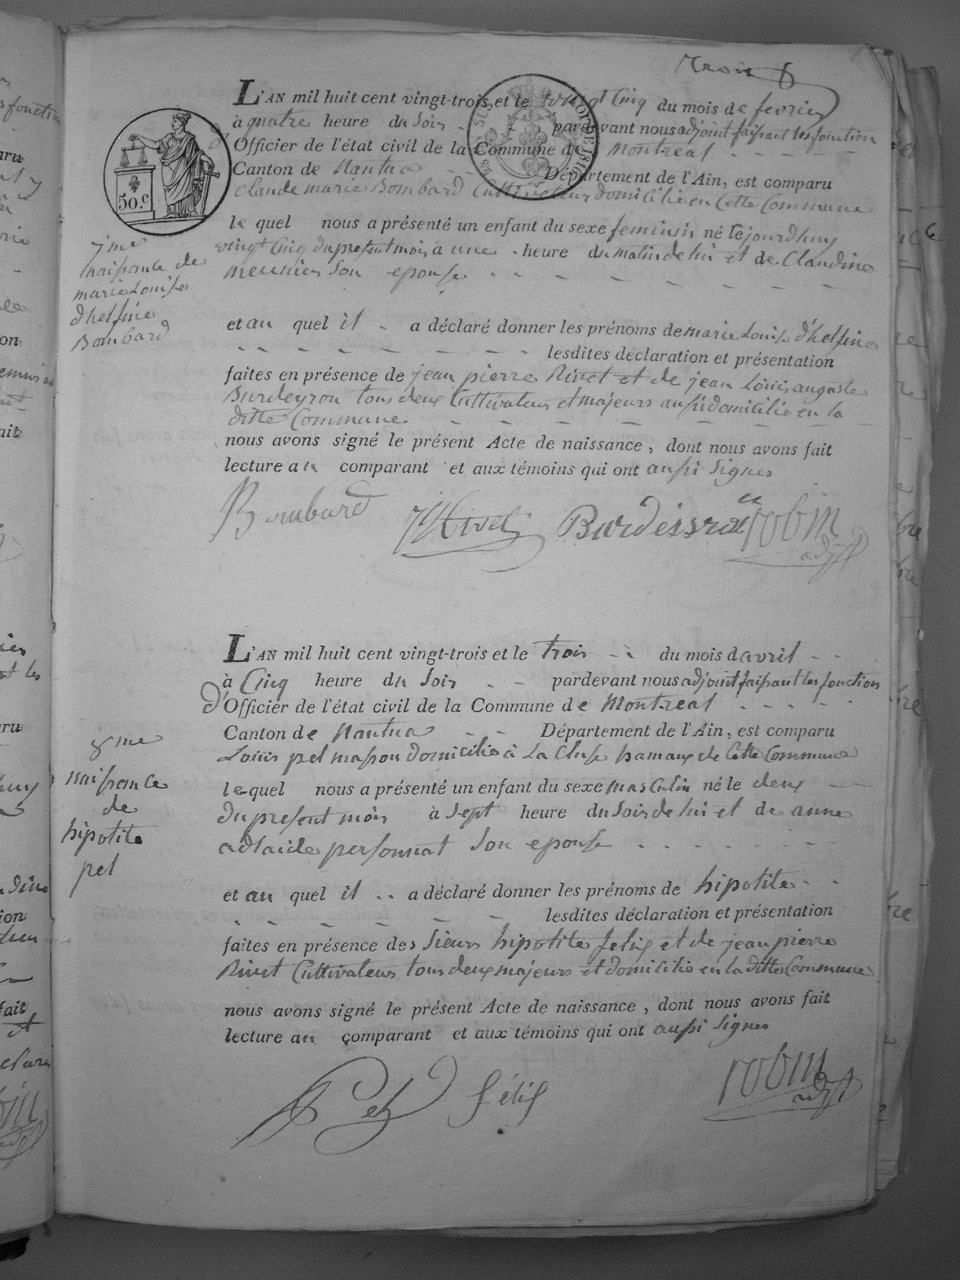 trois
L'AN mil huit cent vingt-trois, et le vingt Cinq du mois de fevrier
à quatre heure du Soir pardevant nous adjoint faisant les fonction
d'Officier de l'état civil de la Commune de Montreal
Canton de Nantua Département de l'Ain, est comparu
Claude marie Bombard Cultivateur domicilié en Cette Commune
le quel nous a présenté un enfant du sexe feminin né le jourdhuy
vingt Cinq du present mois à une heure du matin de lui et de Claudine
meunier Son epouse
et au quel il a déclaré donner les prénoms de marie Louise d'helfine
lesdites déclaration et présentation
faites en présence de jean pierre Rivet et de jean Louis auguste
Burdeyron tous deux Cultivateurs et majeurs aussi domicilié en la
ditte Commune
nous avons signé le présent Acte de naissance, dont nous avons fait
lecture au comparant et aux témoins qui ont aussi signes
Bombard Rivet robin adjt
50.c
7me
naissance de
marie Louise
d'helfine
Bombard
L'AN mil huit cent vingt-trois et le trois du mois d'avril
à Cinq heure du Soir pardevant nous adjoint faisant les fonction
d'Officier de l'état civil de la Commune de Montreal
Canton de Nantua Département de l'Ain, est comparu
Louis pel masson domicilié à La Cluse hamaux de Cette Commune
lequel nous a présenté un enfant du sexe masculin né le deux
du present mois à Sept heure du Soir de lui et de anne
adlaide personnat Son epouse
et au quel il a déclaré donner les prénoms de hipolite
lesdites déclaration et présentation
faites en présence des Sieurs hipolite felix et de jean pierre
Rivet Cultivateurs tous deux majeurs et domicilié en la ditte Commune
nous avons signé le présent Acte de naissance, dont nous avons fait
lecture au comparant et aux témoins qui ont aussi signes
Pel félix robin adjt
8me
naissance
de
hipolite
pel